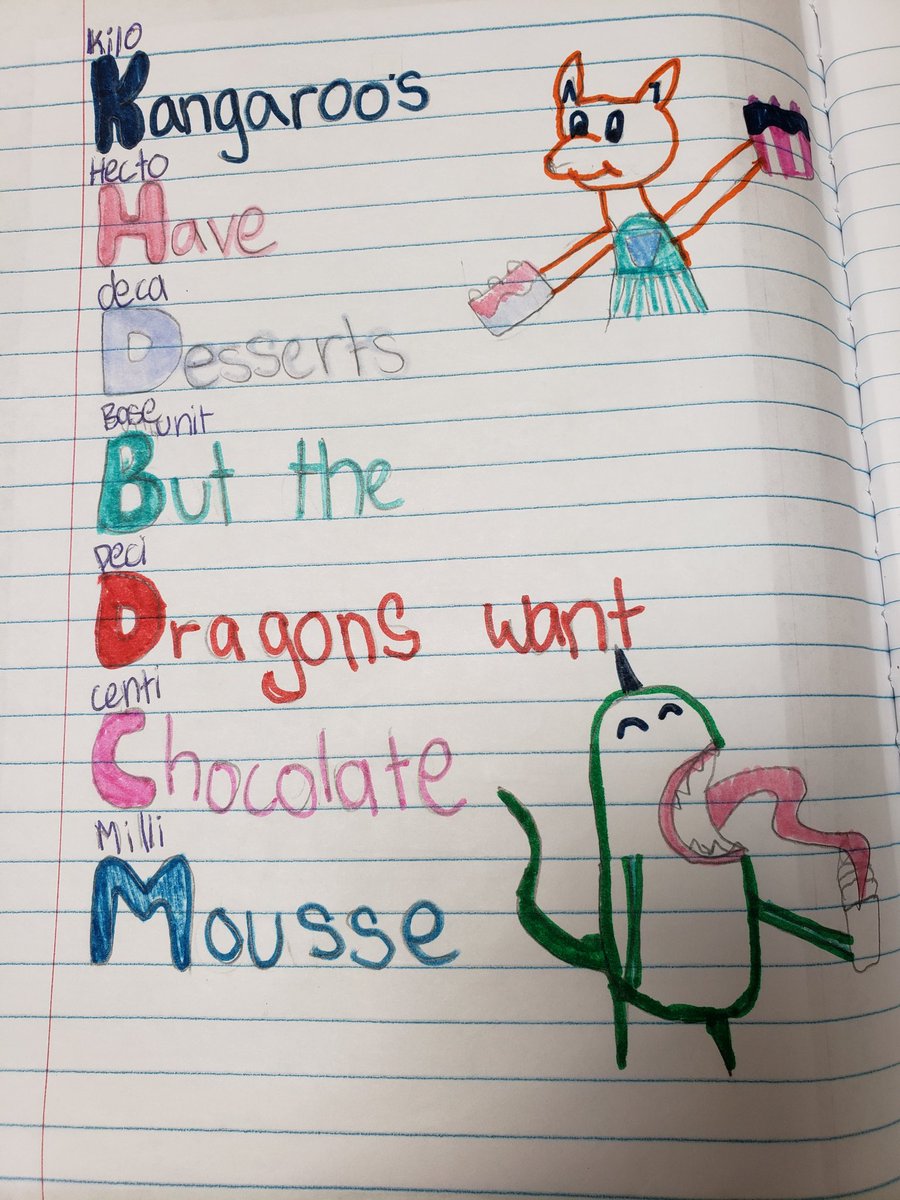 Kilo
Kangaroo's
Hecto
Have
deca
Desserts
Base unit
But the
Deci
Dragons want
centi
Chocolate
Milli
Mousse